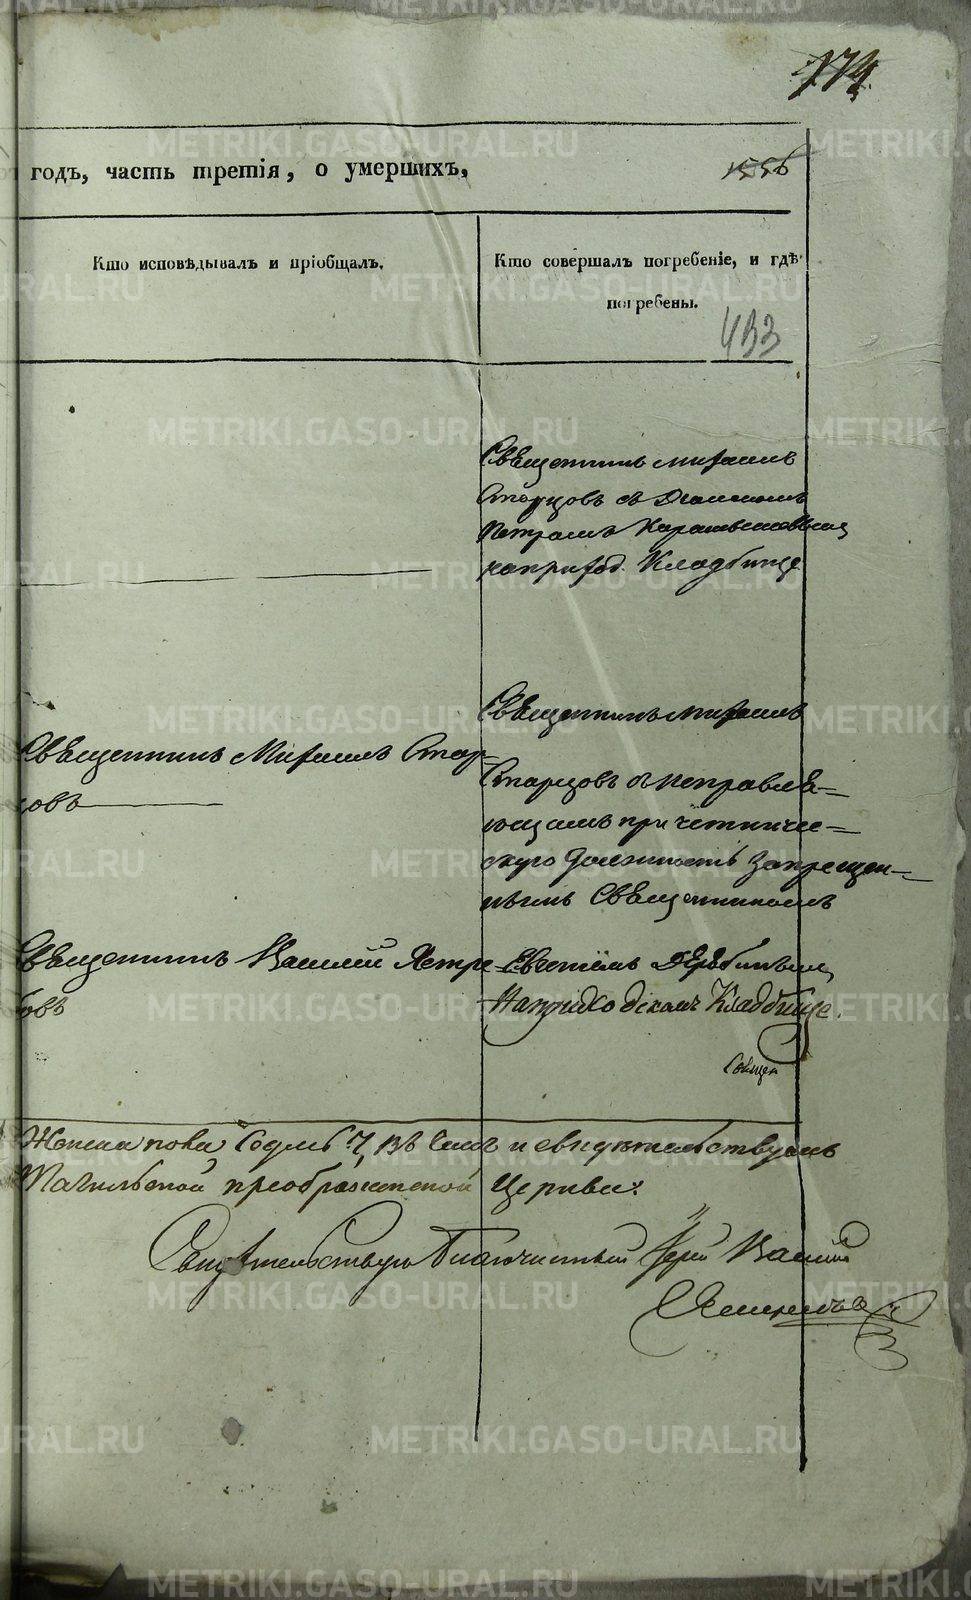 174.
годъ, часть третія, о умершихъ,
1556
Кто исповѣдывалъ и пріобщалъ.
Кто совершалъ погребеніе, и гдѣ
погребены.
433
Священникъ Михаилъ
Старцовъ съ Діакономъ
Петромъ
на приход. Кладбище
Священникъ Михаилъ Стар-
цовъ
Священникъ Михаилъ
Старцовъ съ исправля-
ющимъ причетниче-
скую должность запрещен-
нымъ Священникомъ
Священникъ Василій Ястре-
бовъ
Евгеніемъ
На приходскомъ Кладбище.
Священ
Женска пола Седмь 7, въ чемъ и свидѣтельствуемъ
Преображенской Церкви:
Свидѣтельствую Благочинный Іерей Василій
METRIKI.GASO-URAL.RU